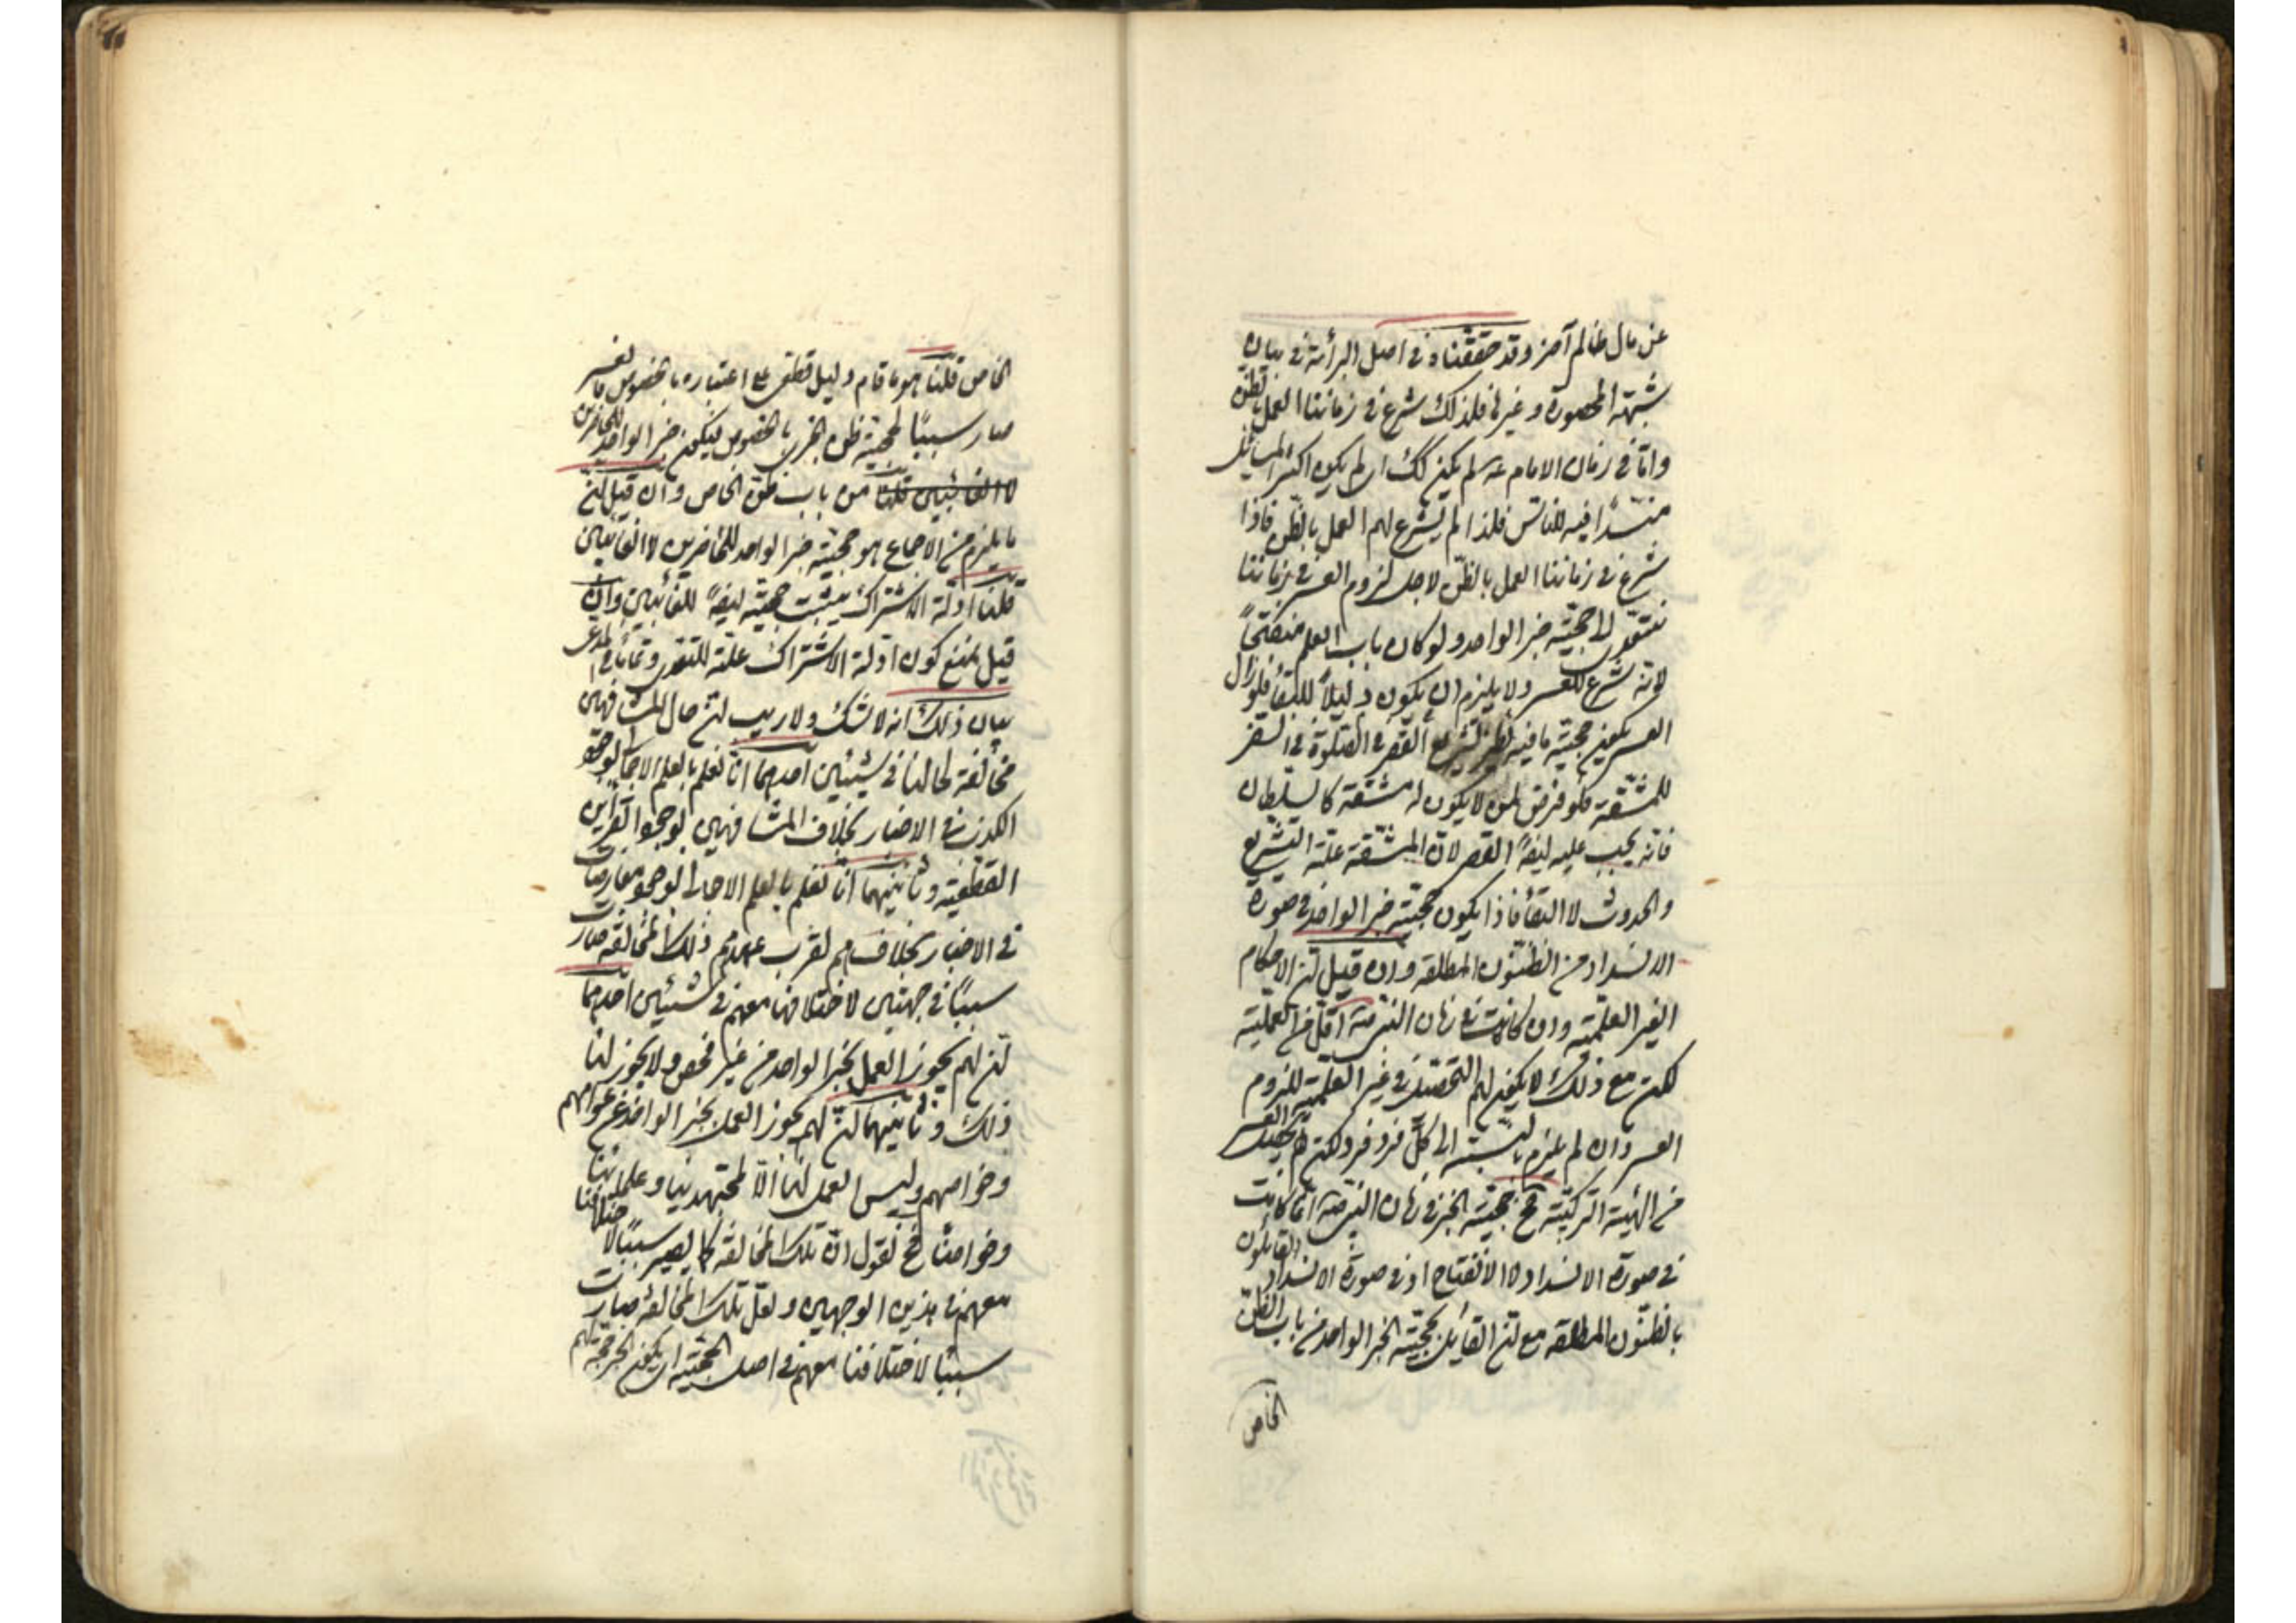 عن مال ظالم آخر وقد حققناه في اصل البرائة في بيان
شبهة المحصورة وغيرها فلذلك شرع في زماننا العمل بالظن
وامّا في زمان الامام عه لم يكن كك اي لم يكون اكثر المسائل
منسدّا فيه للناس فلذا لم يشرع لهم العمل بالظن فاذا
شرع في زماننا العمل بالظن لاجل لزوم العسر في زماننا
حجيّة خبر الواحد ولو كان باب العلم منفتحاً
لانه شرع للعسر ولا يلزم ان يكون دليلاً للبقاء فلو زال
العسر يكون حجيّة ما فيه نظير تشريع القصر في الصلوة في السفر
للمشقة فلو فرض لمن لا يكون له مشقة كالسلطان
فانه يجب عليه ايضاً القصر لان المشقة علة التشريع
والحدوث لا البقاء فاذا يكون حجيّة خبر الواحد في صورة
الانسداد من الظنون المطلقه وان قيل ان الاحكام
الغير العلميّة وان كانت في زمان النبي صه اقل من العلميّة
لكن مع ذلك لا يمكن لهم التحصيل في غير العلميّة للزوم
العسر وان لم يلزم بالنسبة الى كلّ فرد فرد لكن يحصل العسر
من الهيئة التركيبيّة فح حجيّة الخبر في زمان النبي صه انّما كانت
في صورة الانسداد لا الانفتاح او في صورة الانسداد القائلون
بالظنون المطلقه مع ان القايل بحجيّة الخبر الواحد من باب الظن
الخاص
الخاص قلنا هو ما قام دليل قطعي على اعتباره بالخصوص
صار سبباً لحجيّة ظن الخبري بالخصوص فيكون خبر الواحد للحاضرين
لا الغائبين قلنا من باب ظن الخاص وان قيل ان
ما يلزم من الاجماع هو حجيّة خبر الواحد للحاضرين لا الغائبين
قلنا ادلة الاشتراك يثبت حجيّة ايضاً للغائبين وان
قيل نمنع كون ادلة الاشتراك علة للتعدي
بيان ذلك انه لا شك ولا ريب ان حال المشافهين
مخالفة لحالنا في شيئين احدهما انّا نعلم بالعلم الاجمالي لوجود
الكذب في الاخبار بخلاف المشافهين لوجود القراين
القطعيّة وثانيهما انّا نعلم بالعلم الاجمالي لوجود معارضات
في الاخبار بخلافهم لقرب عهدهم ذلك المخالفة صارت
سبباً في جهتين لاختلافنا معهم في شيئين احدهما
ان لهم يجوز العمل بخبر الواحد من غير فحص ولا يجوز لنا
ذلك وثانيهما ان لهم يجوز العمل بخبر الواحد عوامهم
وخواصهم وليس العمل لنا الّا لمجتهدينا وعلمائنا
وخواصنا فح نقول ان تلك المخالفة كما يصير سبباً لاختلافنا
معهم في هذين الوجهين ولعل تلك المخالفة صارت
سبباً لاختلافنا معهم في اصل الحجيّة اي يكون الخبر حجة لهم